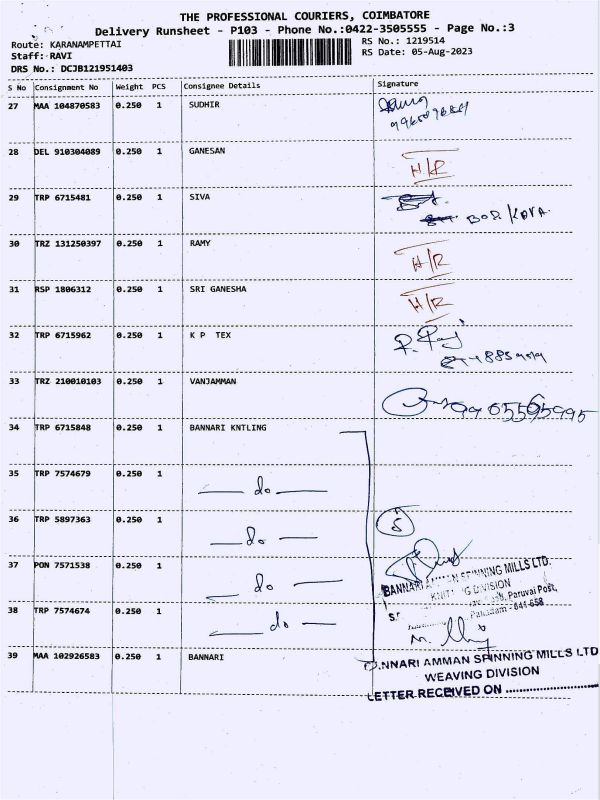 THE PROFESSIONAL COURIERS, COIMBATORE
Delivery Runsheet - P103 - Phone No.:0422-3505555 - Page No.:3
Route: KARANAMPETTAI
RS No.: 1219514
Staff: RAVI
RS Date: 05-Aug-2023
DRS No.: DCJB121951403
S No Consignment No Weight PCS Consignee Details Signature
27 MAA 104870583 0.250 1 SUDHIR
28 DEL 910304089 0.250 1 GANESAN H/R
29 TRP 6715481 0.250 1 SIVA
30 TRZ 131250397 0.250 1 RAMY H/R
31 RSP 1806312 0.250 1 SRI GANESHA H/R
32 TRP 6715962 0.250 1 K P TEX
33 TRZ 210010103 0.250 1 VANJAMMAN
34 TRP 6715848 0.250 1 BANNARI KNTLING
35 TRP 7574679 0.250 1 — do —
36 TRP 5897363 0.250 1 — do — 5
37 PON 7571538 0.250 1 — do —
BANNARI AMMAN SPINNING MILLS LTD.
DIVISION
Paruvai Post,
641 658
38 TRP 7574674 0.250 1 — do —
39 MAA 102926583 0.250 1 BANNARI
NNARI AMMAN SPINNING MILLS LTD
WEAVING DIVISION
LETTER RECEIVED ON ....................